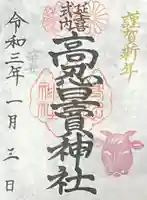 謹賀新年
延喜
式内
高忍日賣神社
令和三年一月三日